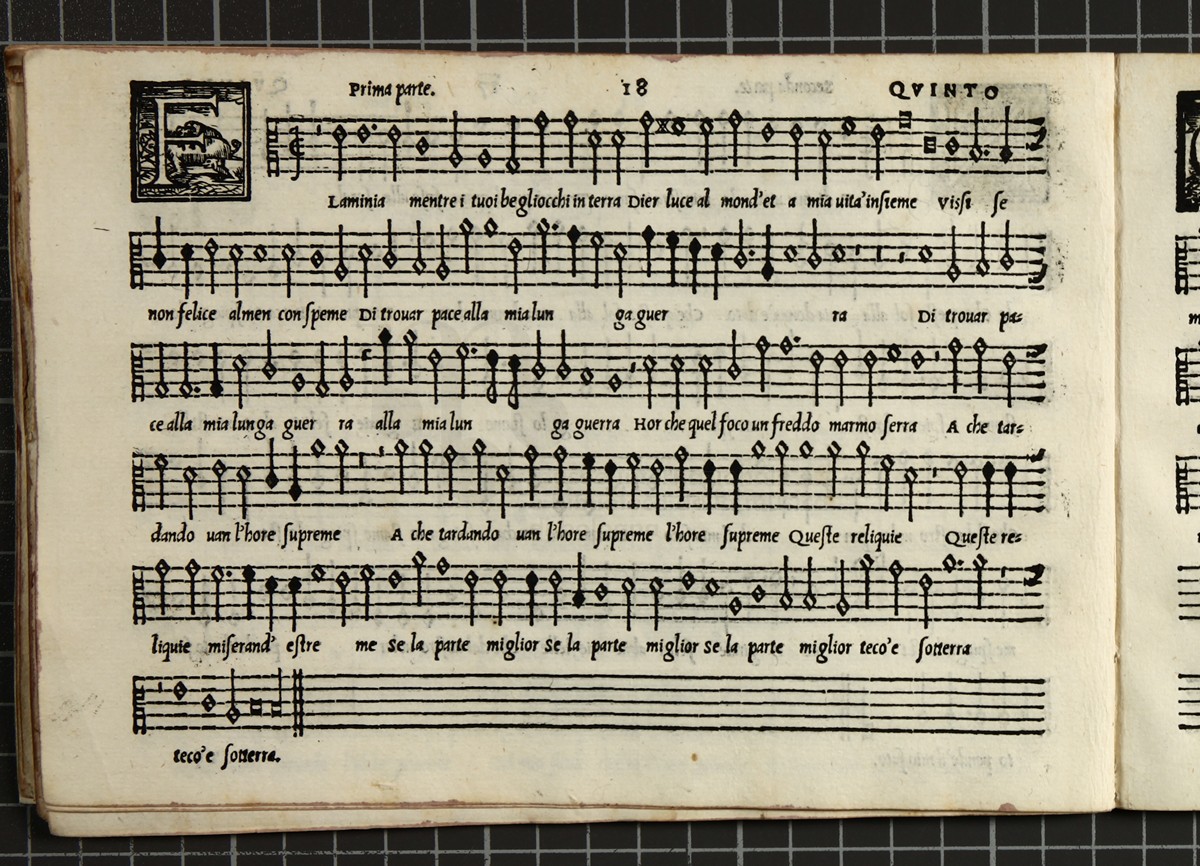 Prima parte. 18 QVINTO
F Laminia mentre i tuoi begliocchi in terra Dier luce al mond'et a mia uita'insieme Vissi se
non felice almen con speme Di trouar pace alla mia lun ga guer ra Di trouar pa=
ce alla mia lunga guer ra alla mia lun ga guerra Hor che quel foco un freddo marmo serra A che tar=
dando uan l'hore supreme A che tardando uan l'hore supreme l'hore supreme Queste reliquie Queste re=
liquie miserand' estre me se la parte miglior se la parte miglior se la parte miglior teco'e sotterra
teco'e sotterra.